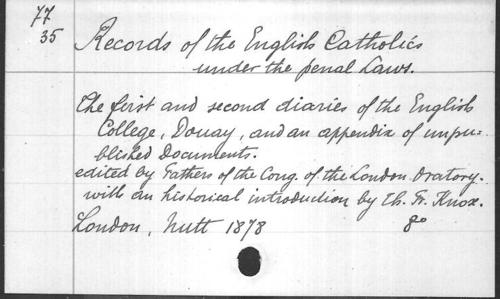 77
35
Records of the English Catholics
under the penal Laws.
The first and second diaries of the English
College, Douay, and an appendix of unpu=
blished Documents.
edited by Fathers of the Cong. of the London Oratory.
with an historical introduction by Th. Fr. Knox.
London, Nutt 1878 8°